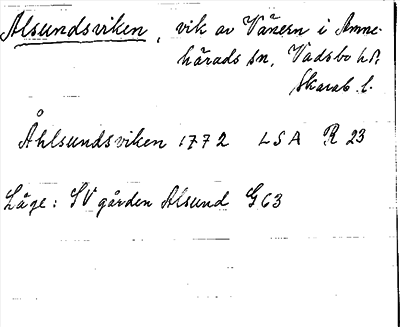 Alsundsviken, vik av Vänern i Amne-
härads sn, Vadsbo hd.
Skarab. l.
Åhlsundsviken 1772 LSA R 23
Läge: SV gården Alsund G63